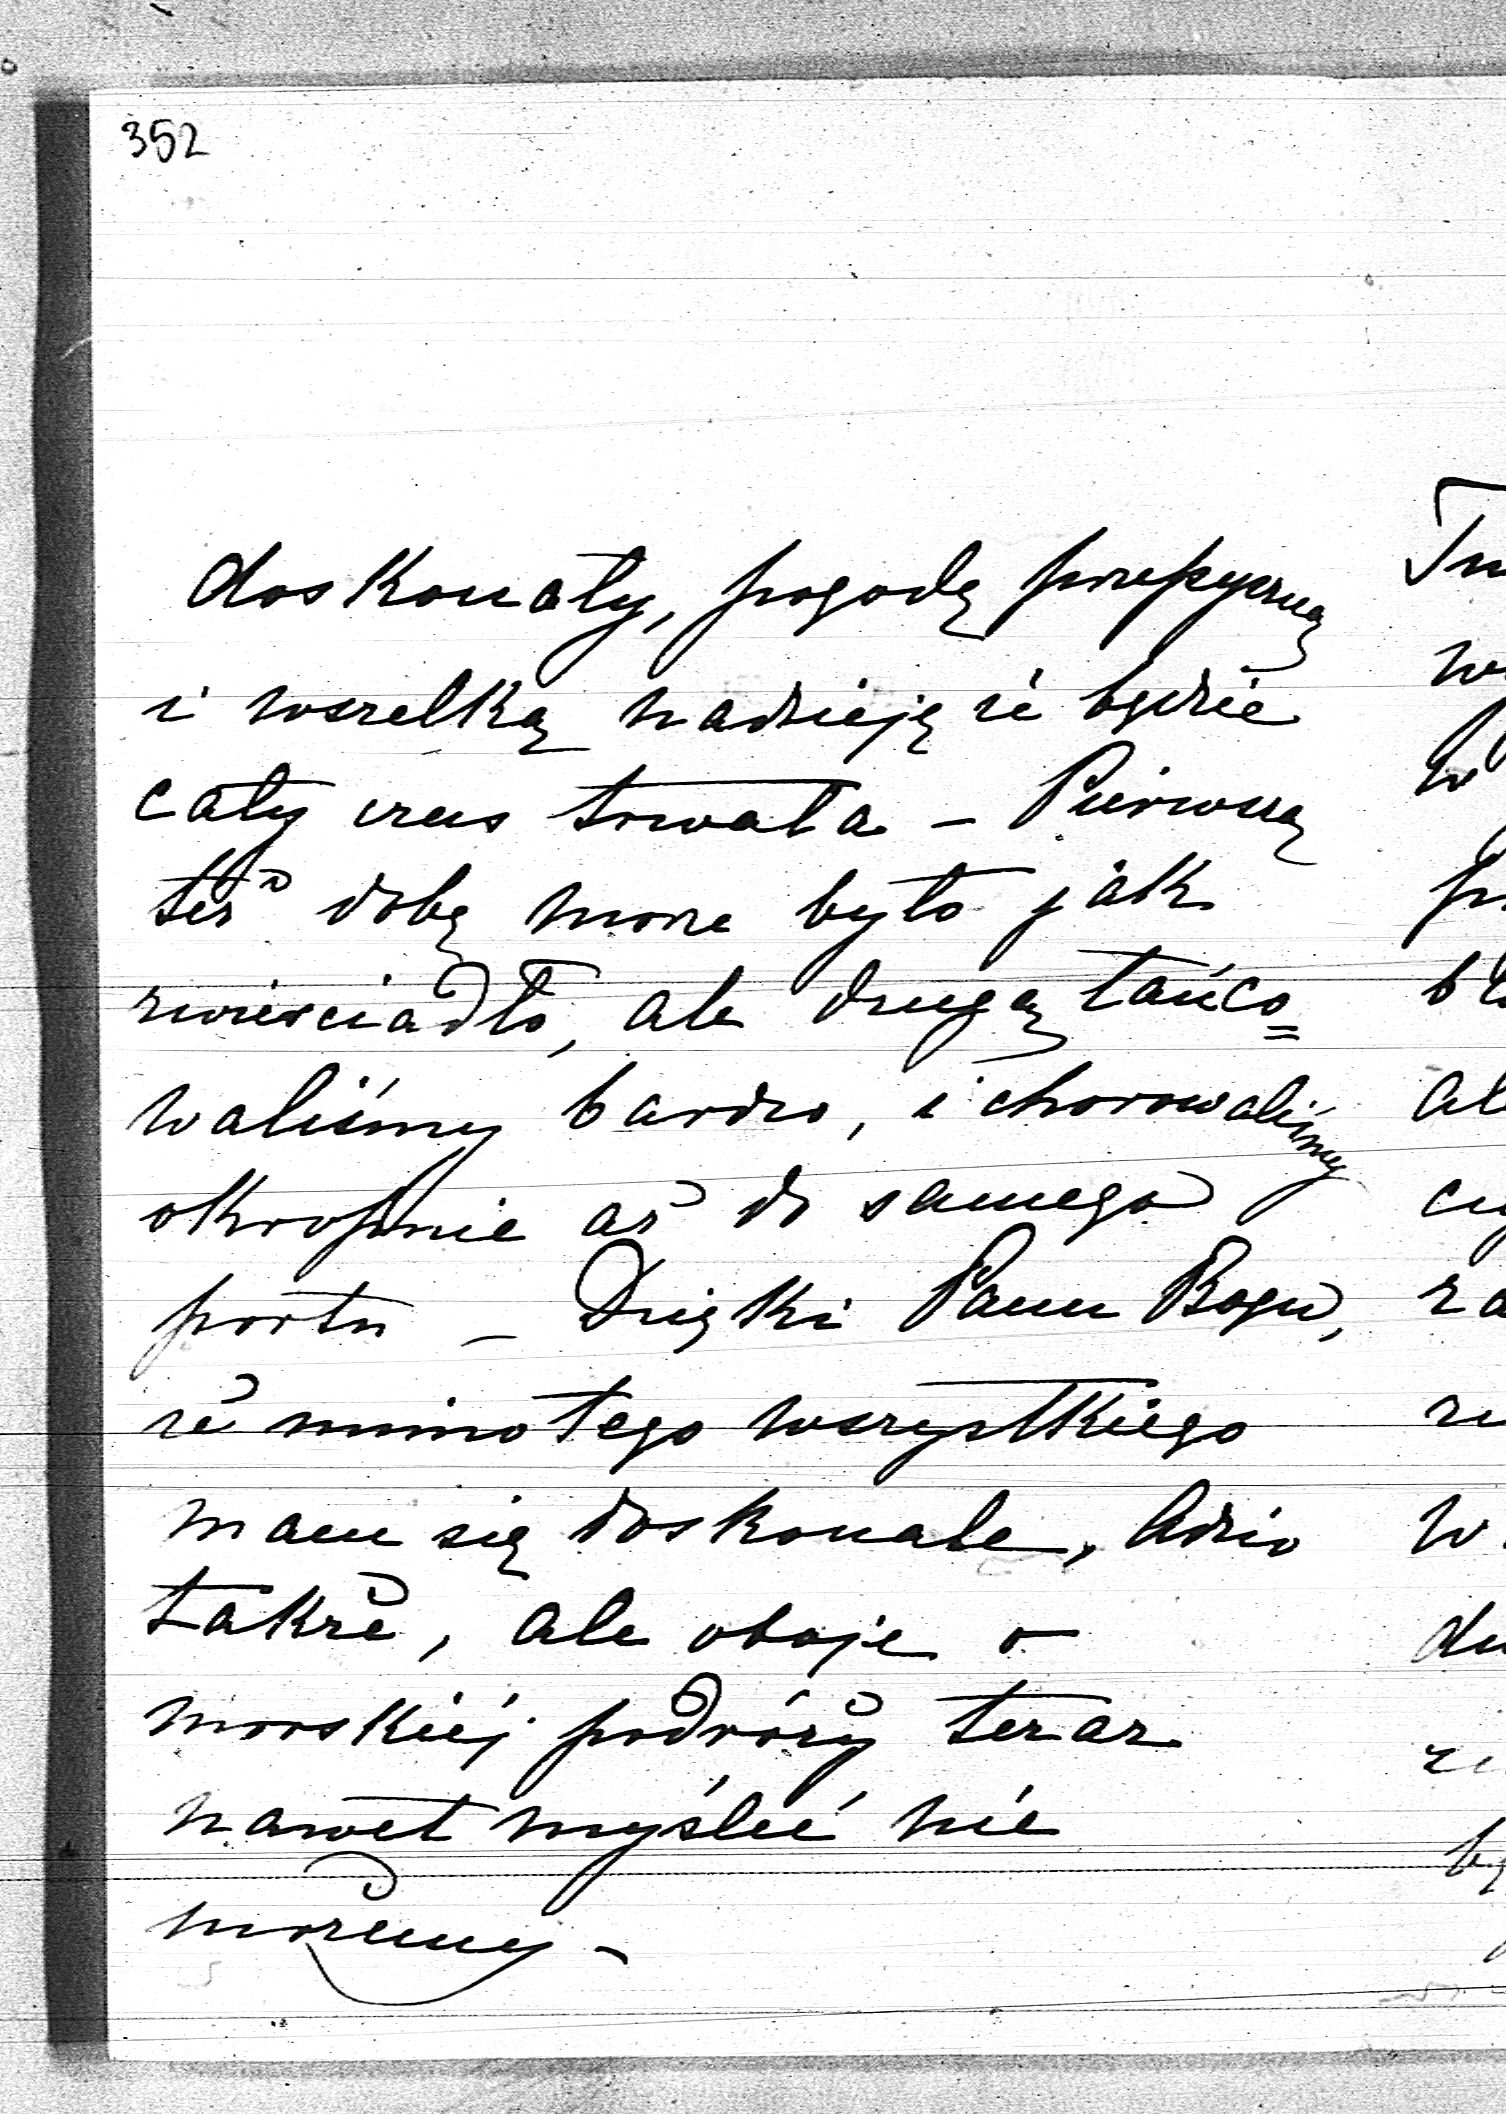 352
doskonały, pogodę przepyszną
i wszelką nadzieję że będzie
cały czas trwała – Pierwszą
też dobę morze było jak
zwierciadło, ale drugą tańco=
waliśmy bardzo, i chorowaliśmy
okropnie aż do samego
portu – Dzięki Panu Bogu,
że mimo tego wszystkiego
mam się doskonale, Adzio
także, ale oboje o
morskiéj podróży teraz
nawet myśleć nie
możemy –